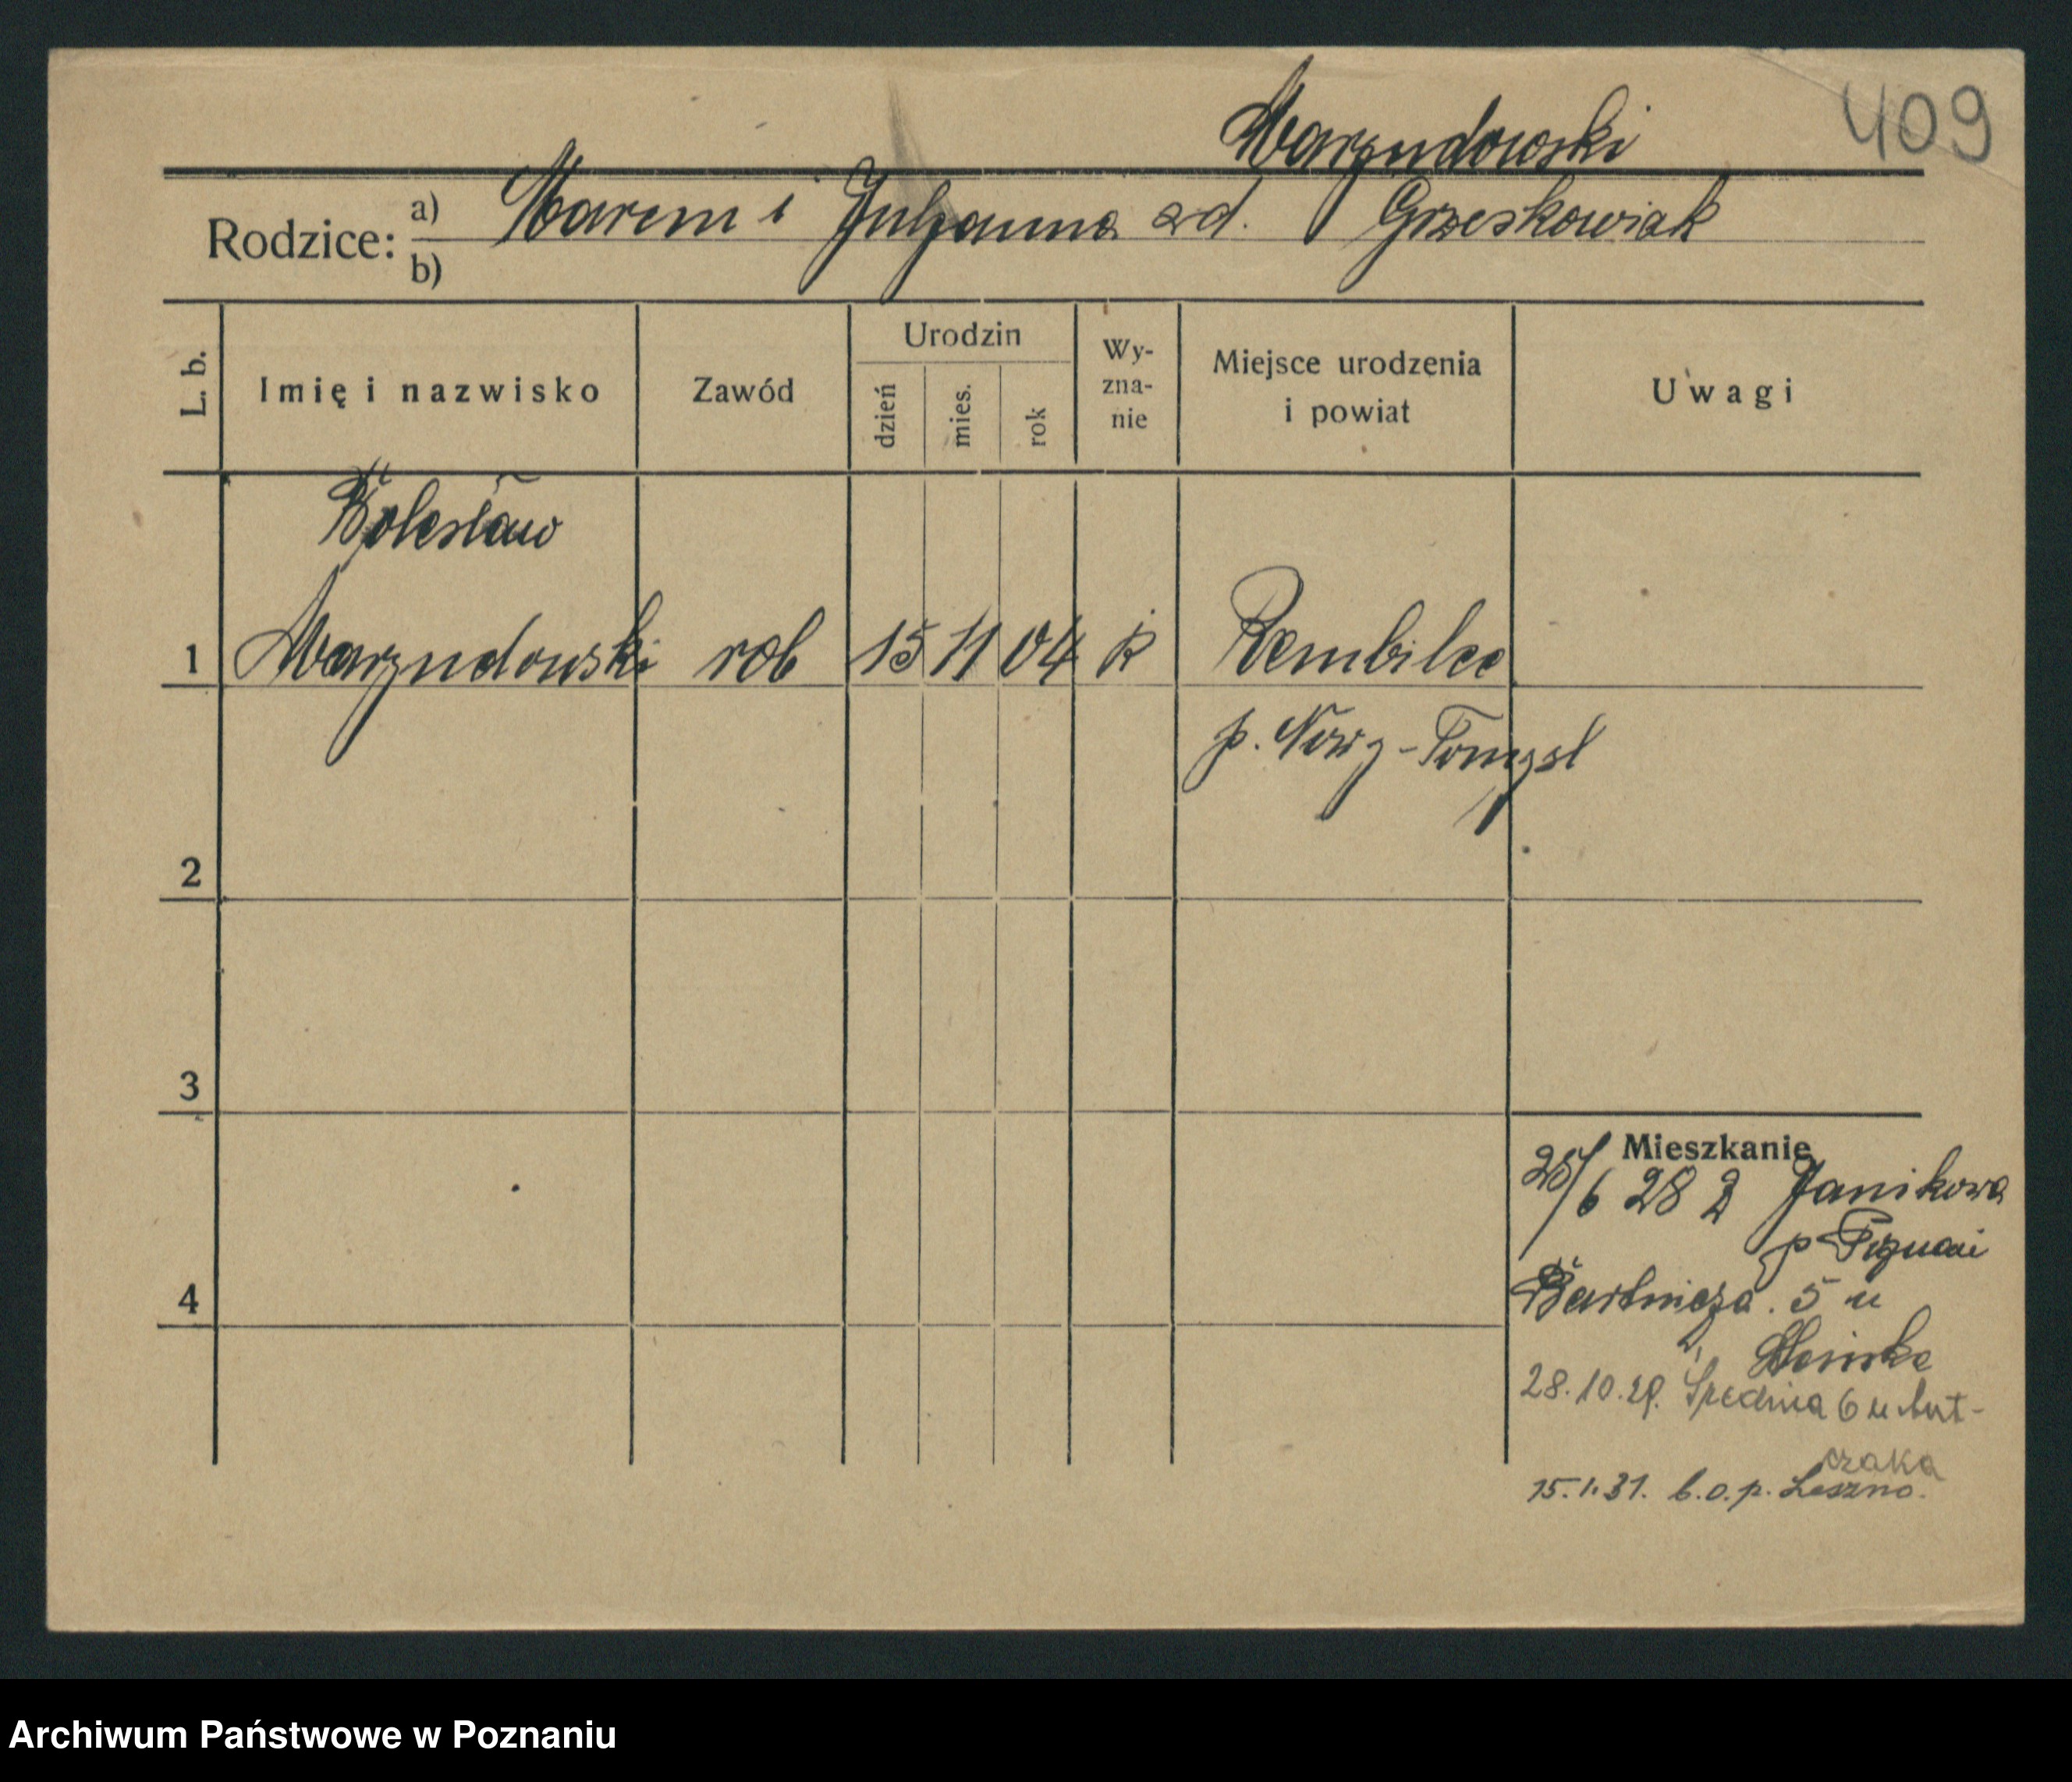 409
Marzndowski
Rodzice: a) Marcin i Julyanna zd. Grzeskowiak
b)
L. b.
Imię i nazwisko
Zawód
Urodzin
dzień
mies.
rok
Wy-
zna-
nie
Miejsce urodzenia
i powiat
Uwagi
Bolesław
1 Marzndowski rob 15 11 04 k
p. Nowy-Tomysl
2
3
Mieszkanie
25/6 28 z Janikowa
p
4
Bartnicza. 5 u
28.10.29. Średnia 6 u
czaka
15.1.31. b.o.p. Leszno.
Archiwum Państwowe w Poznaniu